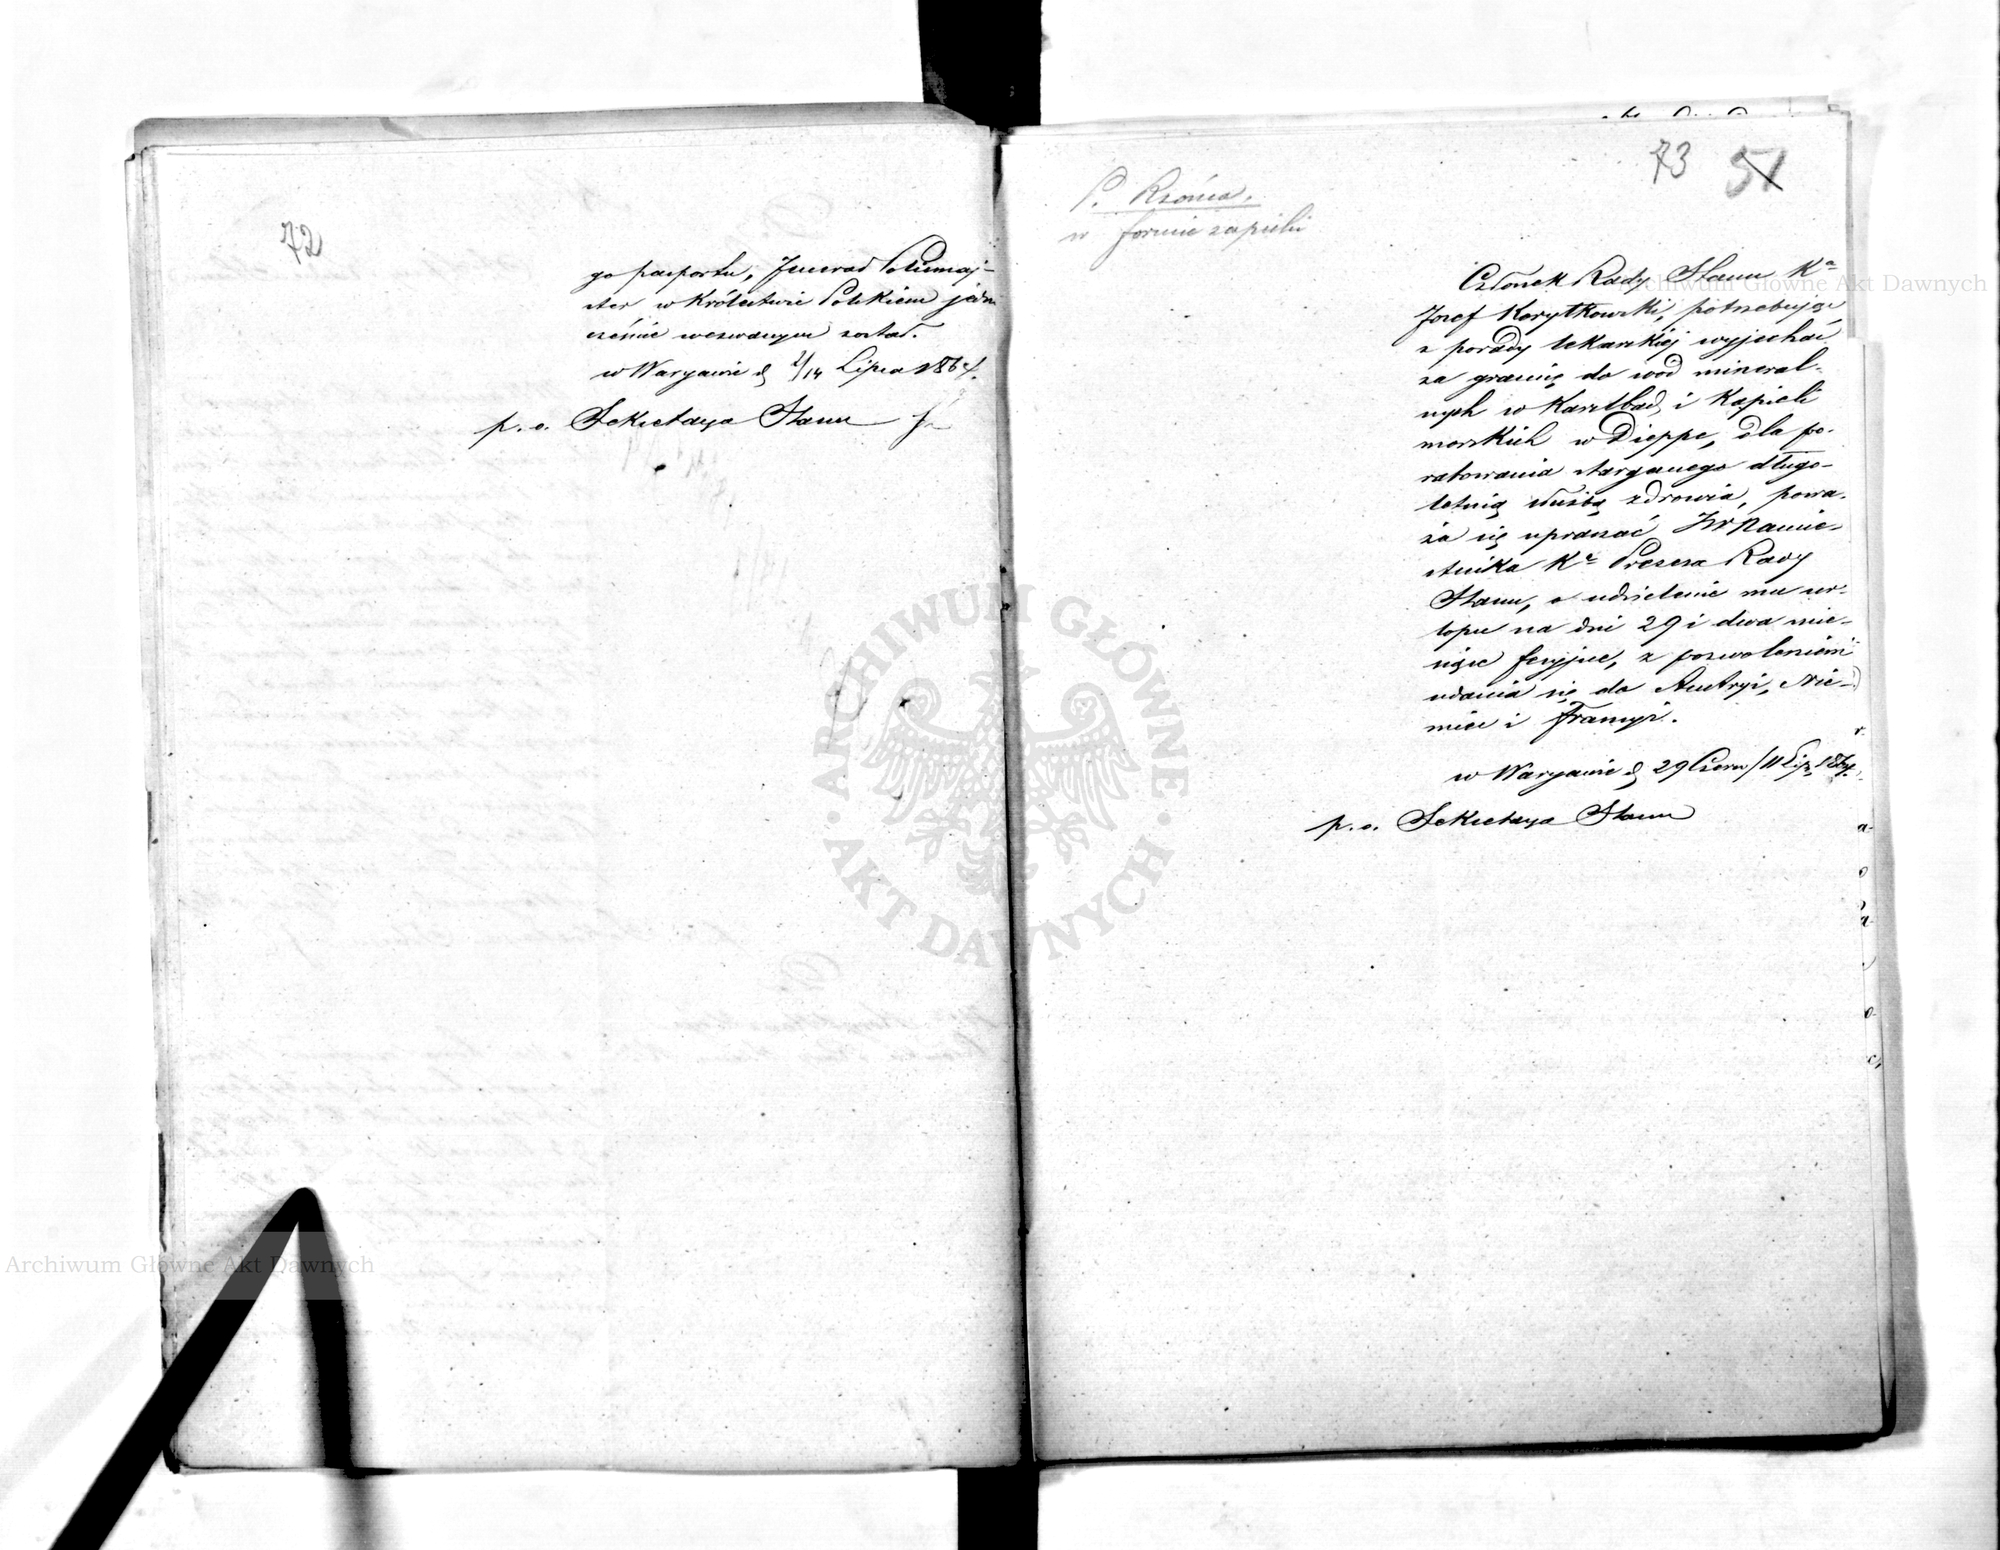 72
go paszportu, Jenerał Policmaj-
ster w Królestwie Polskiem jedno
cześnie wezwanym został.
w Warszawie d. 2/14 Lipca 1864.
p. o. Sekretarza Stanu
73 51
P. Rzońca.
w formie zapiski
Członek Rady Stanu Ka
Józef Korytkowski, potrzebując
z porady lekarskiej wyjechać
za granicę do wód mineral-
nych w Karlsbad, i kąpieli
morskich w Dieppe, dla po-
ratowania starganego długo-
letnią służbą zdrowia, powa-
ża się upraszać JW Namie-
stnika Ka Prezesa Rady
Stanu, o udzielenie mu ur-
lopu na dni 29 i dwa mie-
siące feryjne, z pozwoleniem
udania się do Austryi, Nie-
miec i Francyi.
w Warszawie d. 29 Czerw/11 Lip. 1864.
p. o. Sekretarza Stanu
ARCHIWUM GŁÓWNE
AKT DAWNYCH
Archiwum Główne Akt Dawnych
Archiwum Główne Akt Dawnych